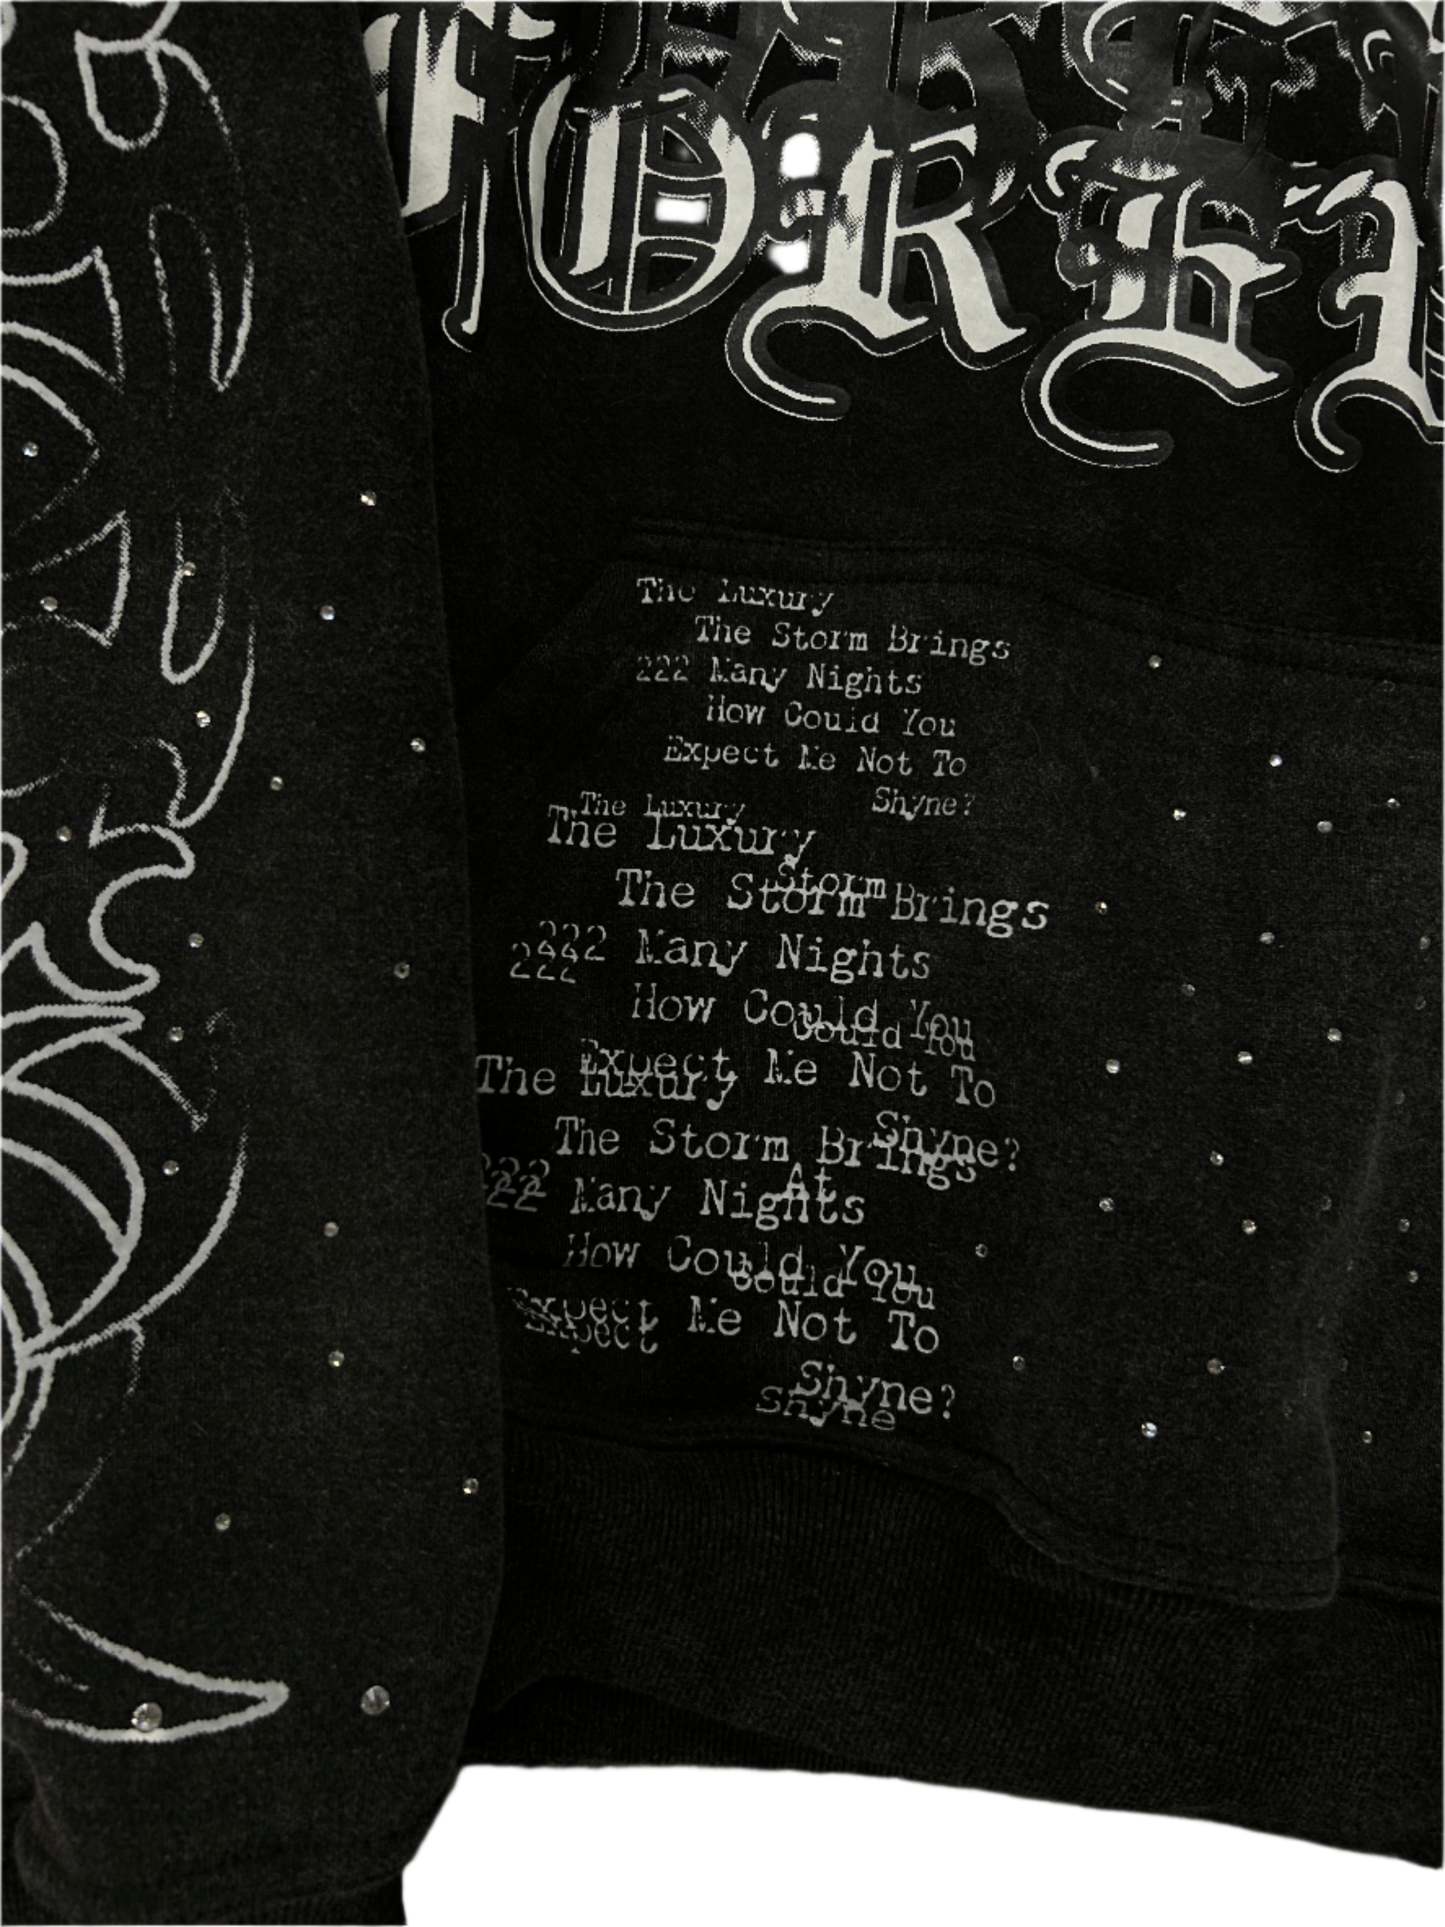 The Luxury
The Storm Brings
222 Many Nights
How Could You
Expect Me Not To
Shyne?
The Luxury
The Luxury
Storm
The Storm Brings
222 Many Nights
222
How Could You
Could You
Expect Me Not To
The Luxury
Shyne?
The Storm Brings
At
222 Many Nights
222
How Could You
Could You
Expect Me Not To
Expect
Shyne?
Shyne